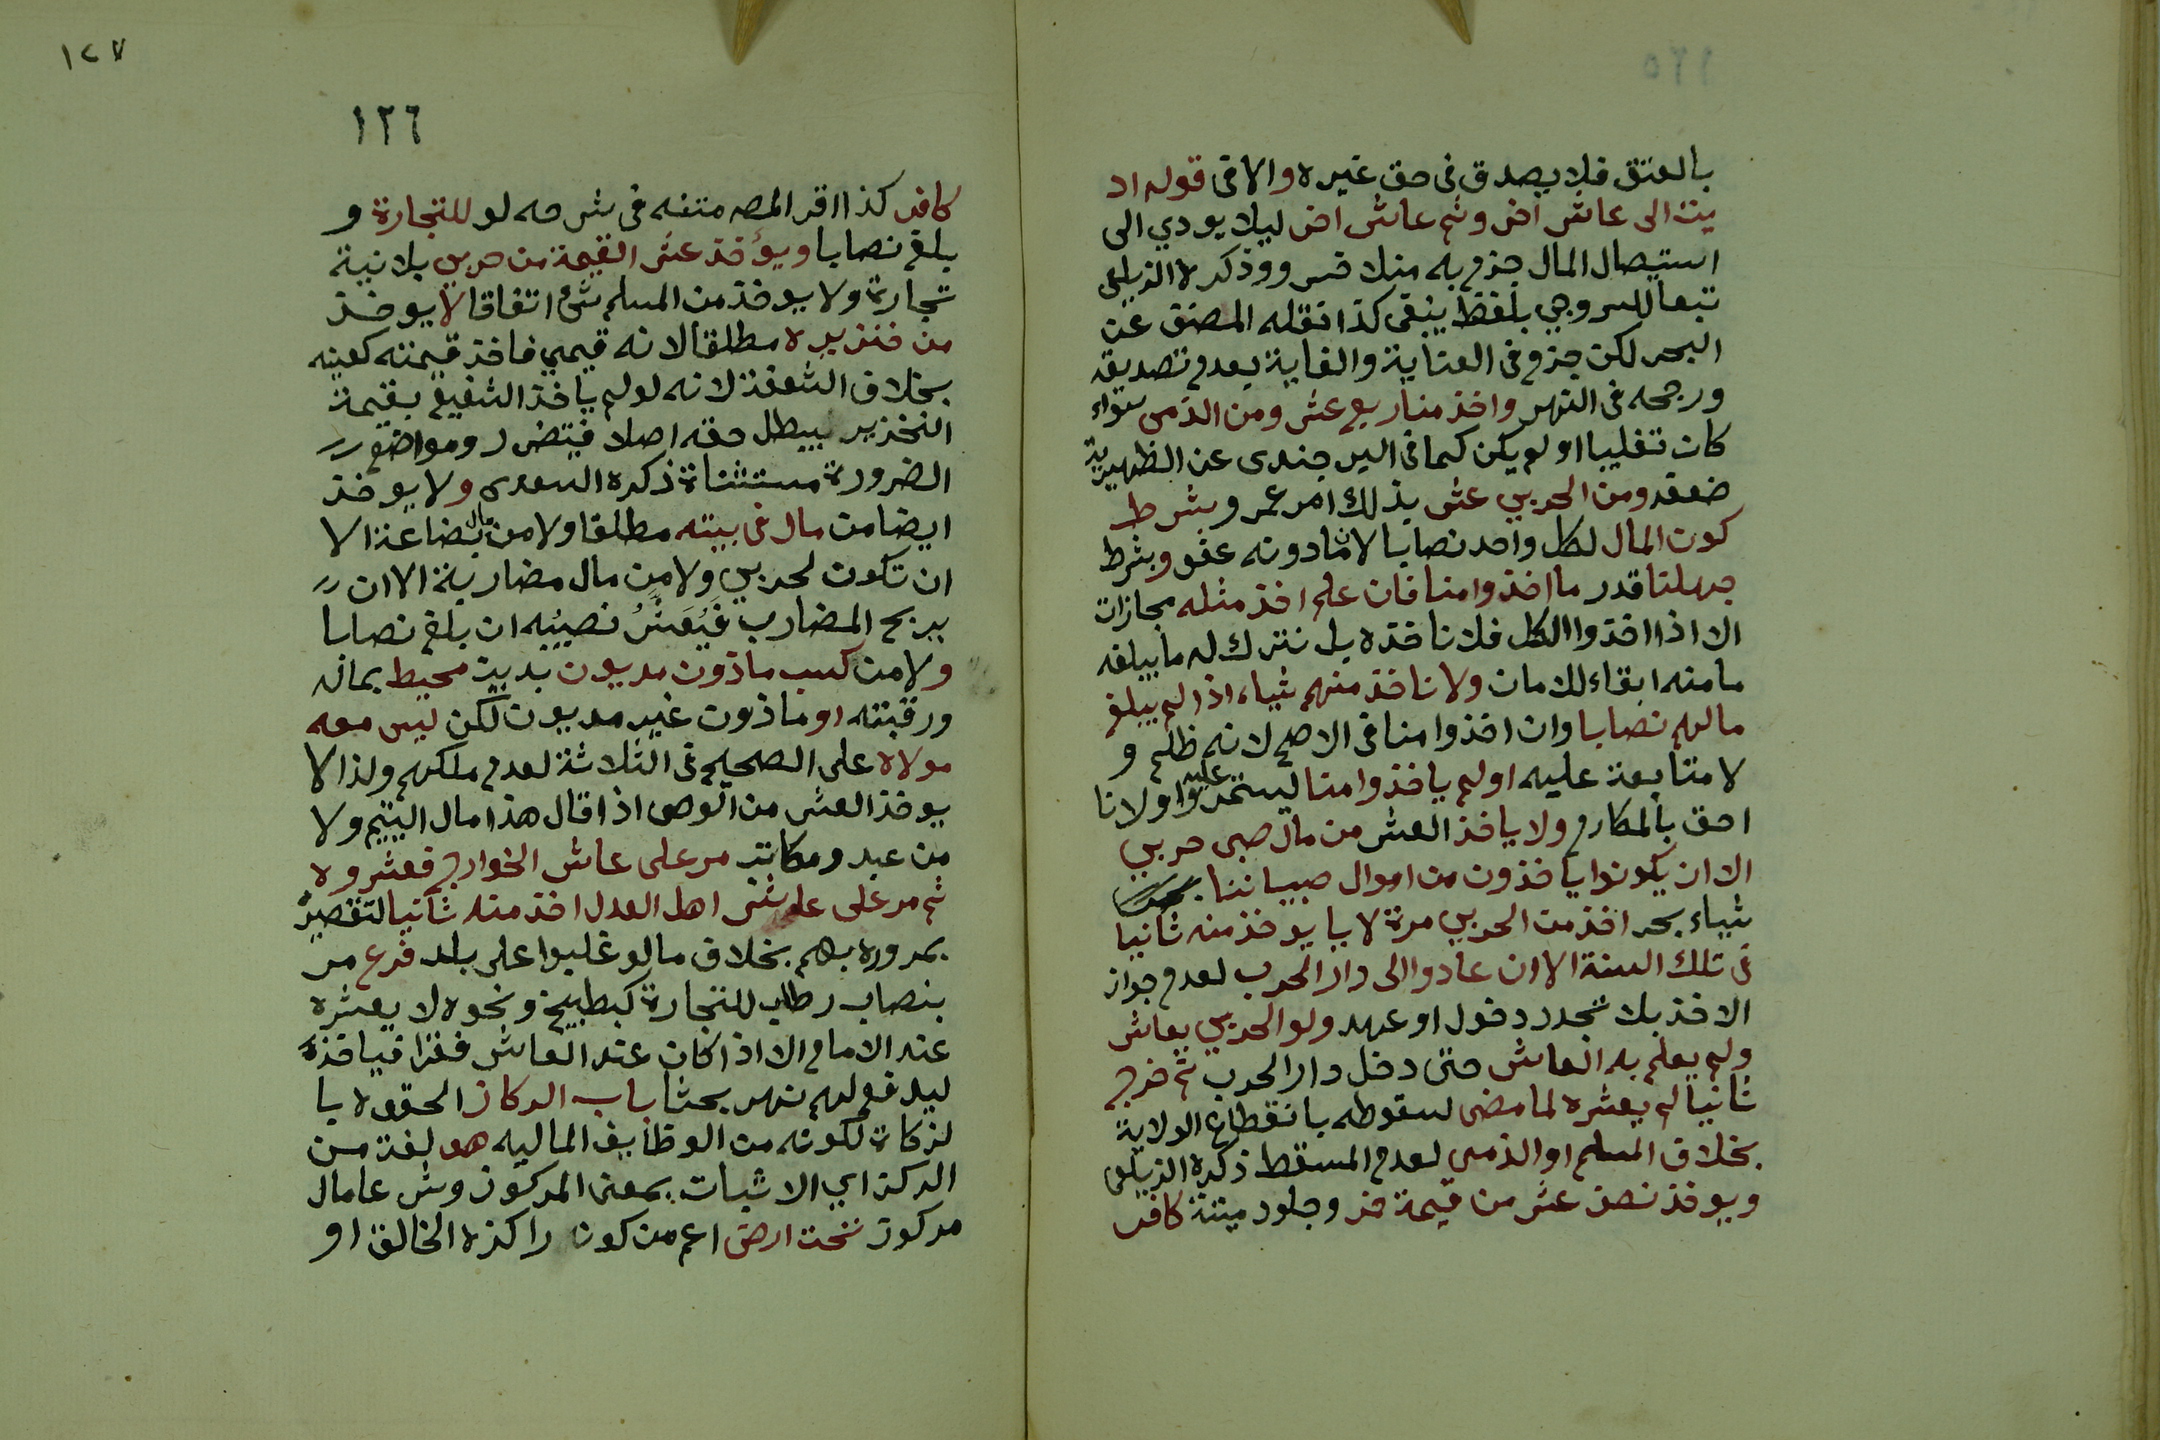 بالعتق فلا يصدق فى حق غيره والا فى قوله اد
يت الى عاشر اخر وثم عاشر اخر ليلا يودي الى
استيصال المال جزم به منلا خسرو وذكره الزيلعى
تبعا للسروجي بلفظ ينبغى كذا نقله المصنف عن
البحر لكن جزم فى العناية والغاية بعدم تصديقه
ورجحه فى النهر واخذ منا ربع عشر ومن الذمى سواء
كان تغلبيا او لم يكن كما فى البرجندى عن الظهيرية
ضعفه ومن الحربي عشر بذلك امر عمر وبشرط
كون المال لكل واحد نصابا لان مادونه عفو وبشرط
جهلنا قدر ما اخذوا منا فان علم اخذ مثله مجازات
الا اذا اخذوا الكل فلا ناخذه بل نترك له ما يبلغه
مامنه ابقاء للامان ولا ناخذ منهم شياء اذا لم يبلغ
مالهم نصابا وان اخذوا منا فى الاصح لانه ظلم و
لا متابعة عليه او لم ياخذوا منا ليستمروا عليه ولانا
احق بالمكارم ولا ياخذ العشر من مال صبى حربي
الا ان يكونوا ياخذون من اموال صبياننا
شياء بحر اخذ من الحربي مرة لا يا يوخذ منه ثانيا
فى تلك السنة الا ان عادوا الى دار الحرب لعدم جواز
الاخذ بلا تجدد دخول او عهد ولو الحربي بعاشر
ولم يعلم به العاشر حتى دخل دار الحرب ثم خرج
ثانيا لم يعشره لما مضى لسقوطه بانقطاع الولاية
بخلاف المسلم او الذمى لعدم المسقط ذكره الزيلعى
ويوخذ نصف عشر من قيمة خمر وجلود ميتة كافر
١٢٧
١٢٦
كافر كذا اقر المصه متنه فى شرحه لو للتجارة و
بلغ نصابا ويؤخذ عشر القيمة من حربي بلا نية
تجارة ولا يوخذ من المسلم شئ اتفاقا لا يوخذ
من خنزيره مطلقا لانه قيمي فاخذ قيمته كعينه
بخلاف الشفعة لانه لو لم ياخذ الشفيع بقيمة
الخنزير يبطل حقه اصلا فيتضرر ومواضع
الضرورة مستثناة ذكره السعدى ولا يوخذ
ايضا من مال فى بيته مطلقا ولا من مال بضاعة الا
ان تكون لحربي ولا من مال مضاربة الا ان
يربح المضارب فيعشر نصيبه ان بلغ نصابا
ولا من كسب ماذون مديون بدين محيط بماله
ورقبته او ماذون غير مديون لكن ليس معه
مولاه على الصحيح فى الثلاثة لعدم ملكهم ولذا لا
يوخذ العشر من الوصى اذا قال هذا مال اليتيم ولا
من عبد ومكاتب مر على عاشر الخوارج فعشروه
ثم مر على عاشر اهل العدل اخذ منه ثانيا لتقصيره
بمروره بهم بخلاف مالو غلبوا على بلد فرع مر
بنصاب رطاب للتجارة كبطيخ ونحوه لا يعشره
عند الامام الا اذا كان عند العاشر فقرا فياخذه
ليدفع لهم نهر بحثا باب الركاز الحقوه با
لزكاة لكونه من الوظايف الماليه هو لغة من
الركز اي الاثبات بمعنى المركوز وشرعا مال
مركوز تحت ارض اعم من كون راكزه الخالق او